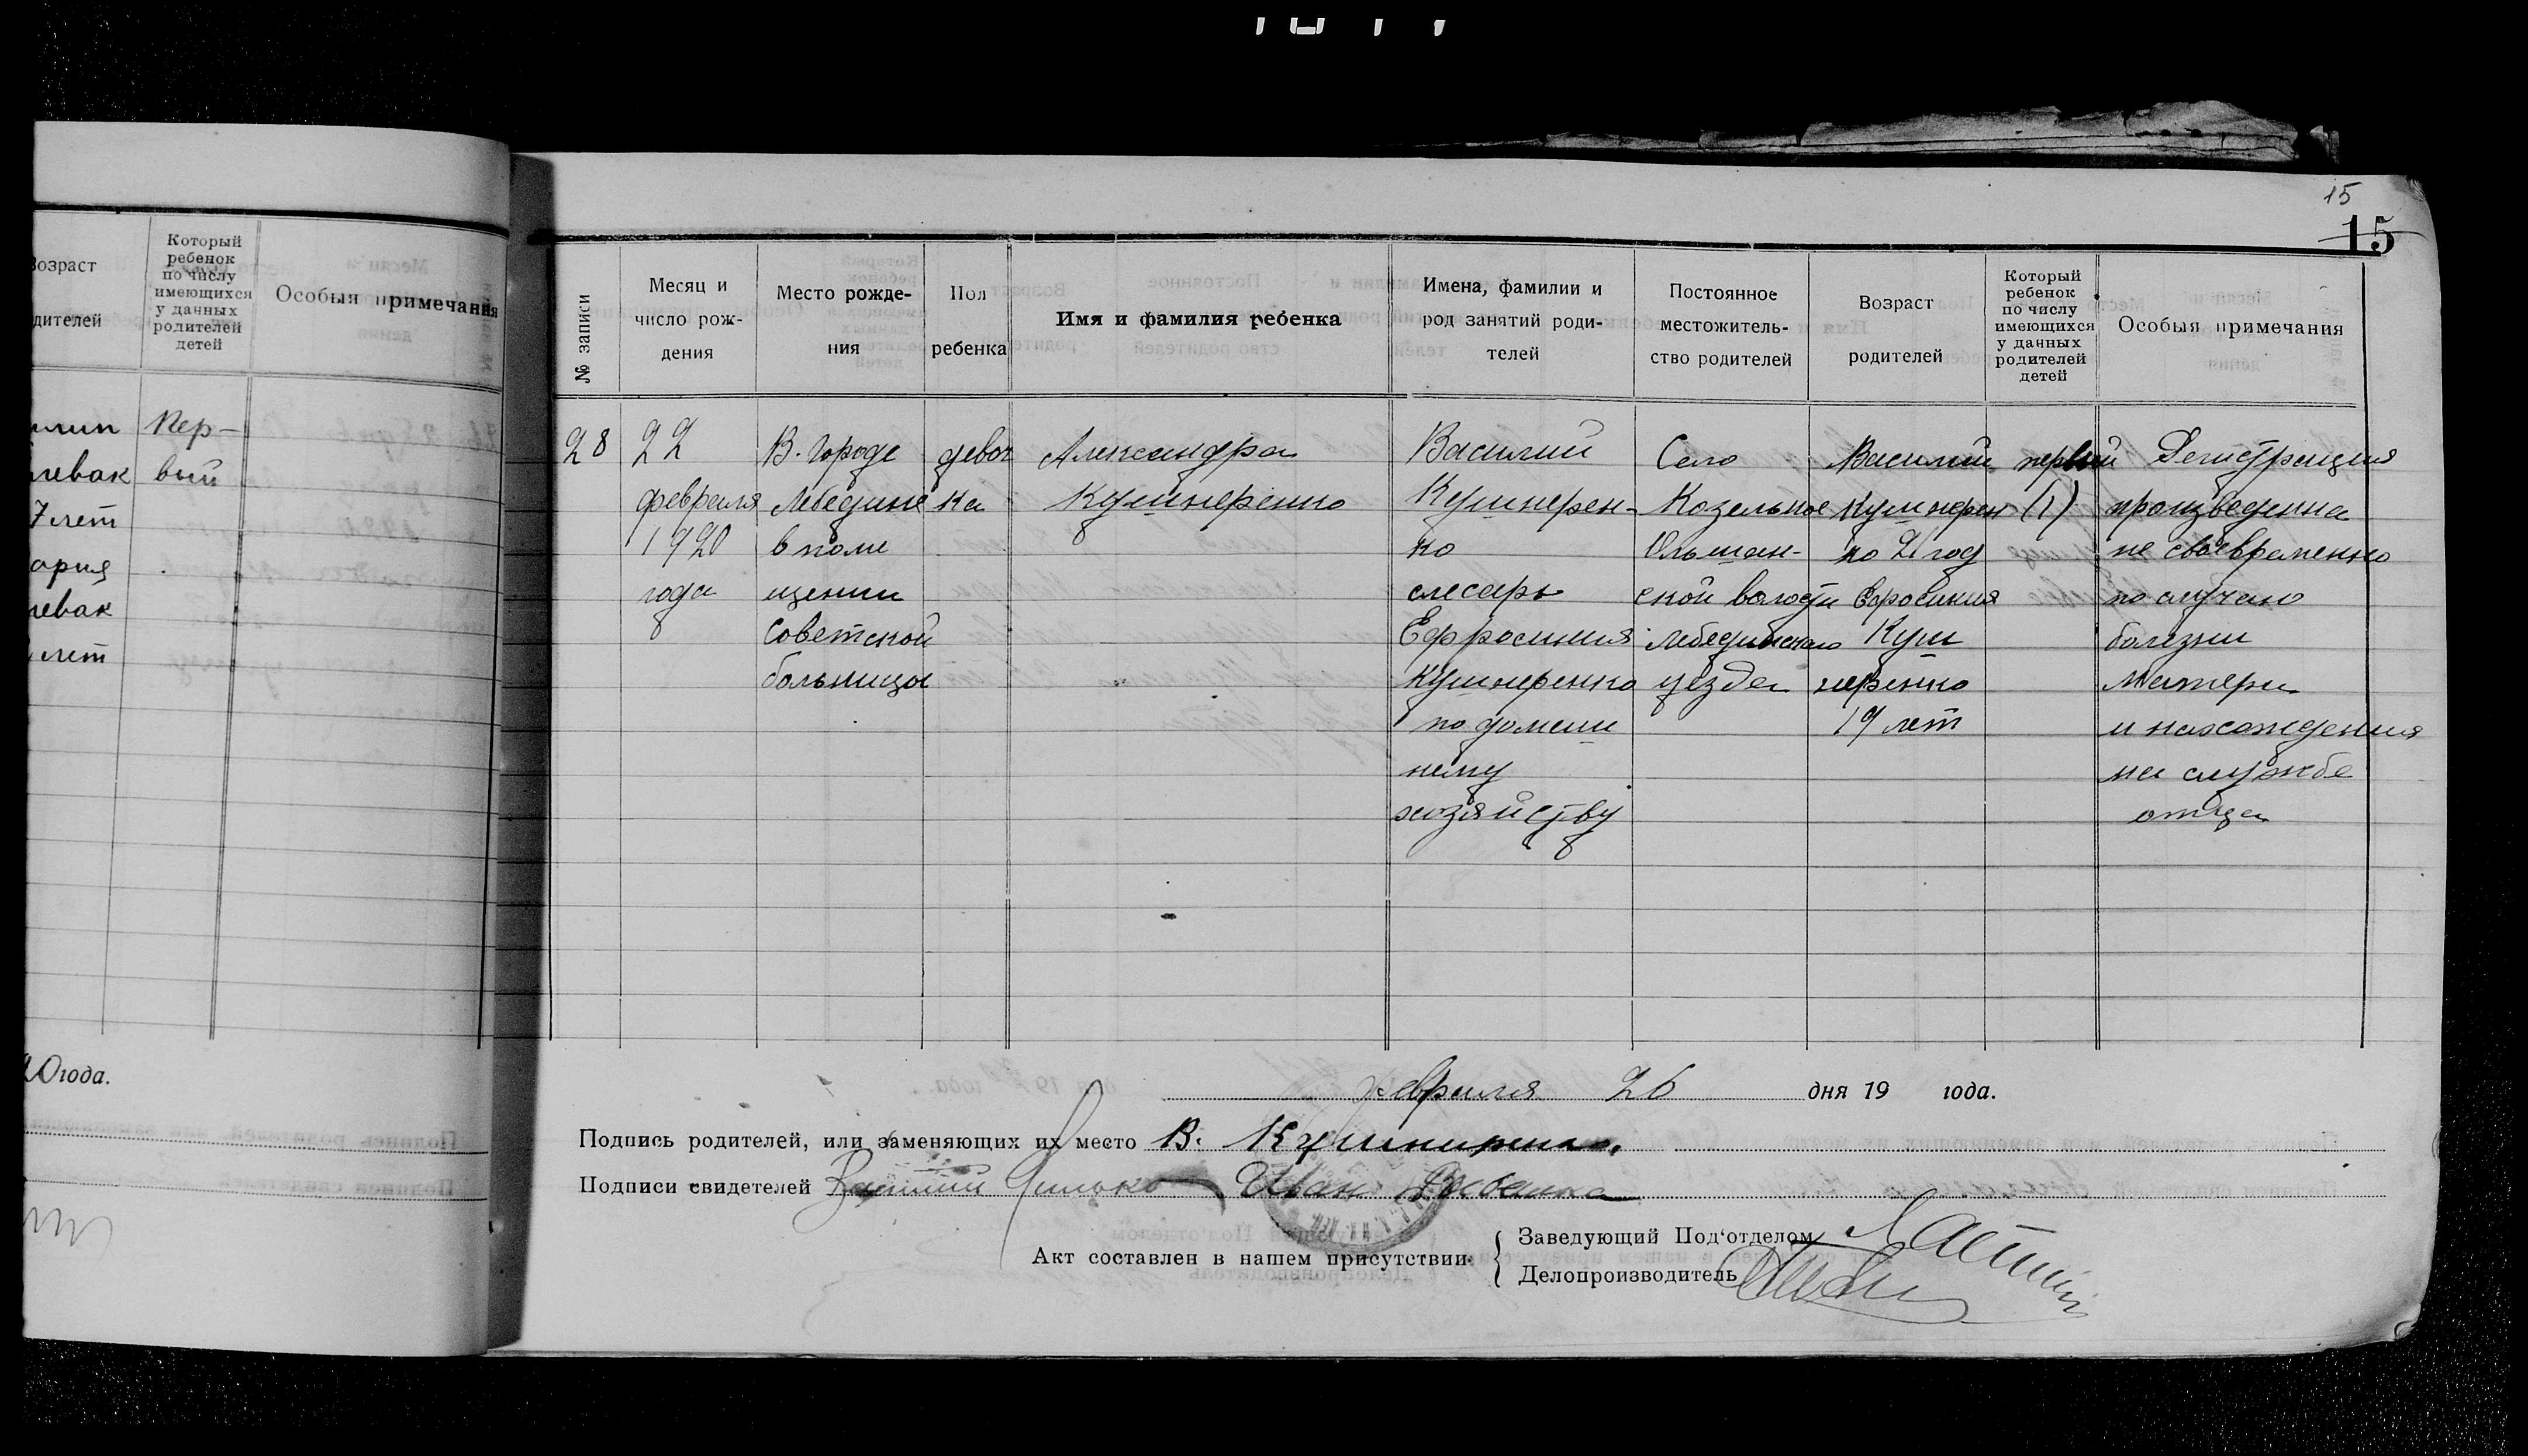 15
15
Возраст
родителей
Который
ребенок
по числу
имеющихся
у данных
родителей
детей
Особыя примечания
Пер-
вый
левак
7 лет
ария
левак
лет
0 года.
№ записи
Месяц и
число рож-
дения
Место рожде-
ния
Пол
ребенка
Имя и фамилия ребенка
Имена, фамилии и
род занятий роди-
телей
Постоянное
местожитель-
ство родителей
Возраст
родителей
Который
ребенок
по числу
имеющихся
у данных
родителей
детей
Особыя примечания
28
22
февраля
1920
года
В. городе
Лебедине
в поме
щении
советской
больницы
девоч
ка
Александра
Кушнеренко
Василий
Кушнерен-
ко
слесарь
Ефросиния
Кушнеренко
по домаш
нему
хозяйству
Село
Козельное
Ольшан-
ской волости
Лебединскаго
уезда
Василий
Кушнерен
ко 21 год
Ефросиния
Куш
неренко
19 лет
первый
(1)
Регистрация
произведенна
не своевременно
по случаю
болезни
матери
и нахождения
на службе
отца
февраля 26 дня 19 года.
Подпись родителей, или заменяющих их место В. Кушниренко.
Подписи свидетелей Василий Иван
Акт составлен в нашем присутствии
Заведующий Под'отделом
Делопроизводитель